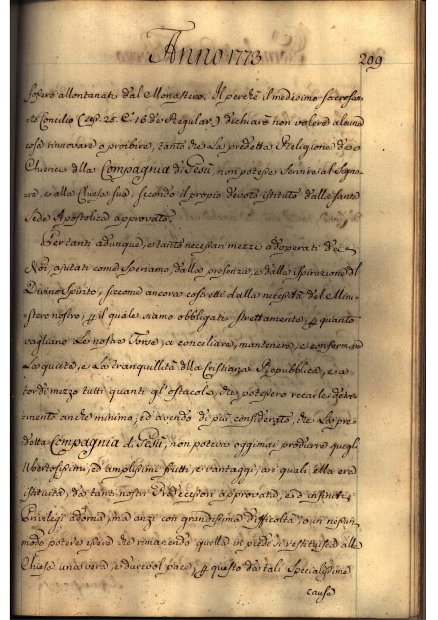 Anno 1773
209
fossero allontanati dal Monastero. Il perchè il medesimo sacrosan-
to Concilio (sess. 25. C. 16 de Regular.) dichiarò non valere alcuna
cosa rinnovare o proibire, tanto che la predetta Religione de'
Chierici della Compagnia di Gesù, non potesse servire al Signo-
re, e alla Chiesa sua, secondo il propio devoto istituto dalla Santa
Sede Apostolica approvato.
Per tanti adunque, e tanto necessari mezzi adoperati da
Noi, ajutati come speriamo, dalla presenza, e dalla ispirazione del
Divino Spirito, siccome ancora costretti dalla necessità del Mini-
stero nostro; p il quale siamo obbligati strettamente, p quanto
vagliano le nostre Forze, a conciliare, mantenere, e confermar
la quiete, e la tranquillità della Cristiana Repubblica, e a
tor di mezzo tutti quanti gl'ostacoli, che potessero recarle detri-
mento anche minimo; ed avendo di più considerato, che la pre-
detta Compagnia di Gesù, non poteva oggimai produrre quegli
Ubertosissimi, ed amplissimi frutti, e vantaggi, a i quali ella era
istituita, da tanti nostri Predecessori approvata, e d'infiniti
Privilegi adorna, ma anzi con grandissima difficoltà, o in nessun
modo potere essere che rimanendo quella in piedi si restituisca alla
Chiesa una vera, e durevol pace; p questo da tali specialissime
cause